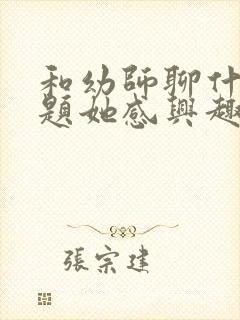 和幼師聊什
題她感興趣
張宗建